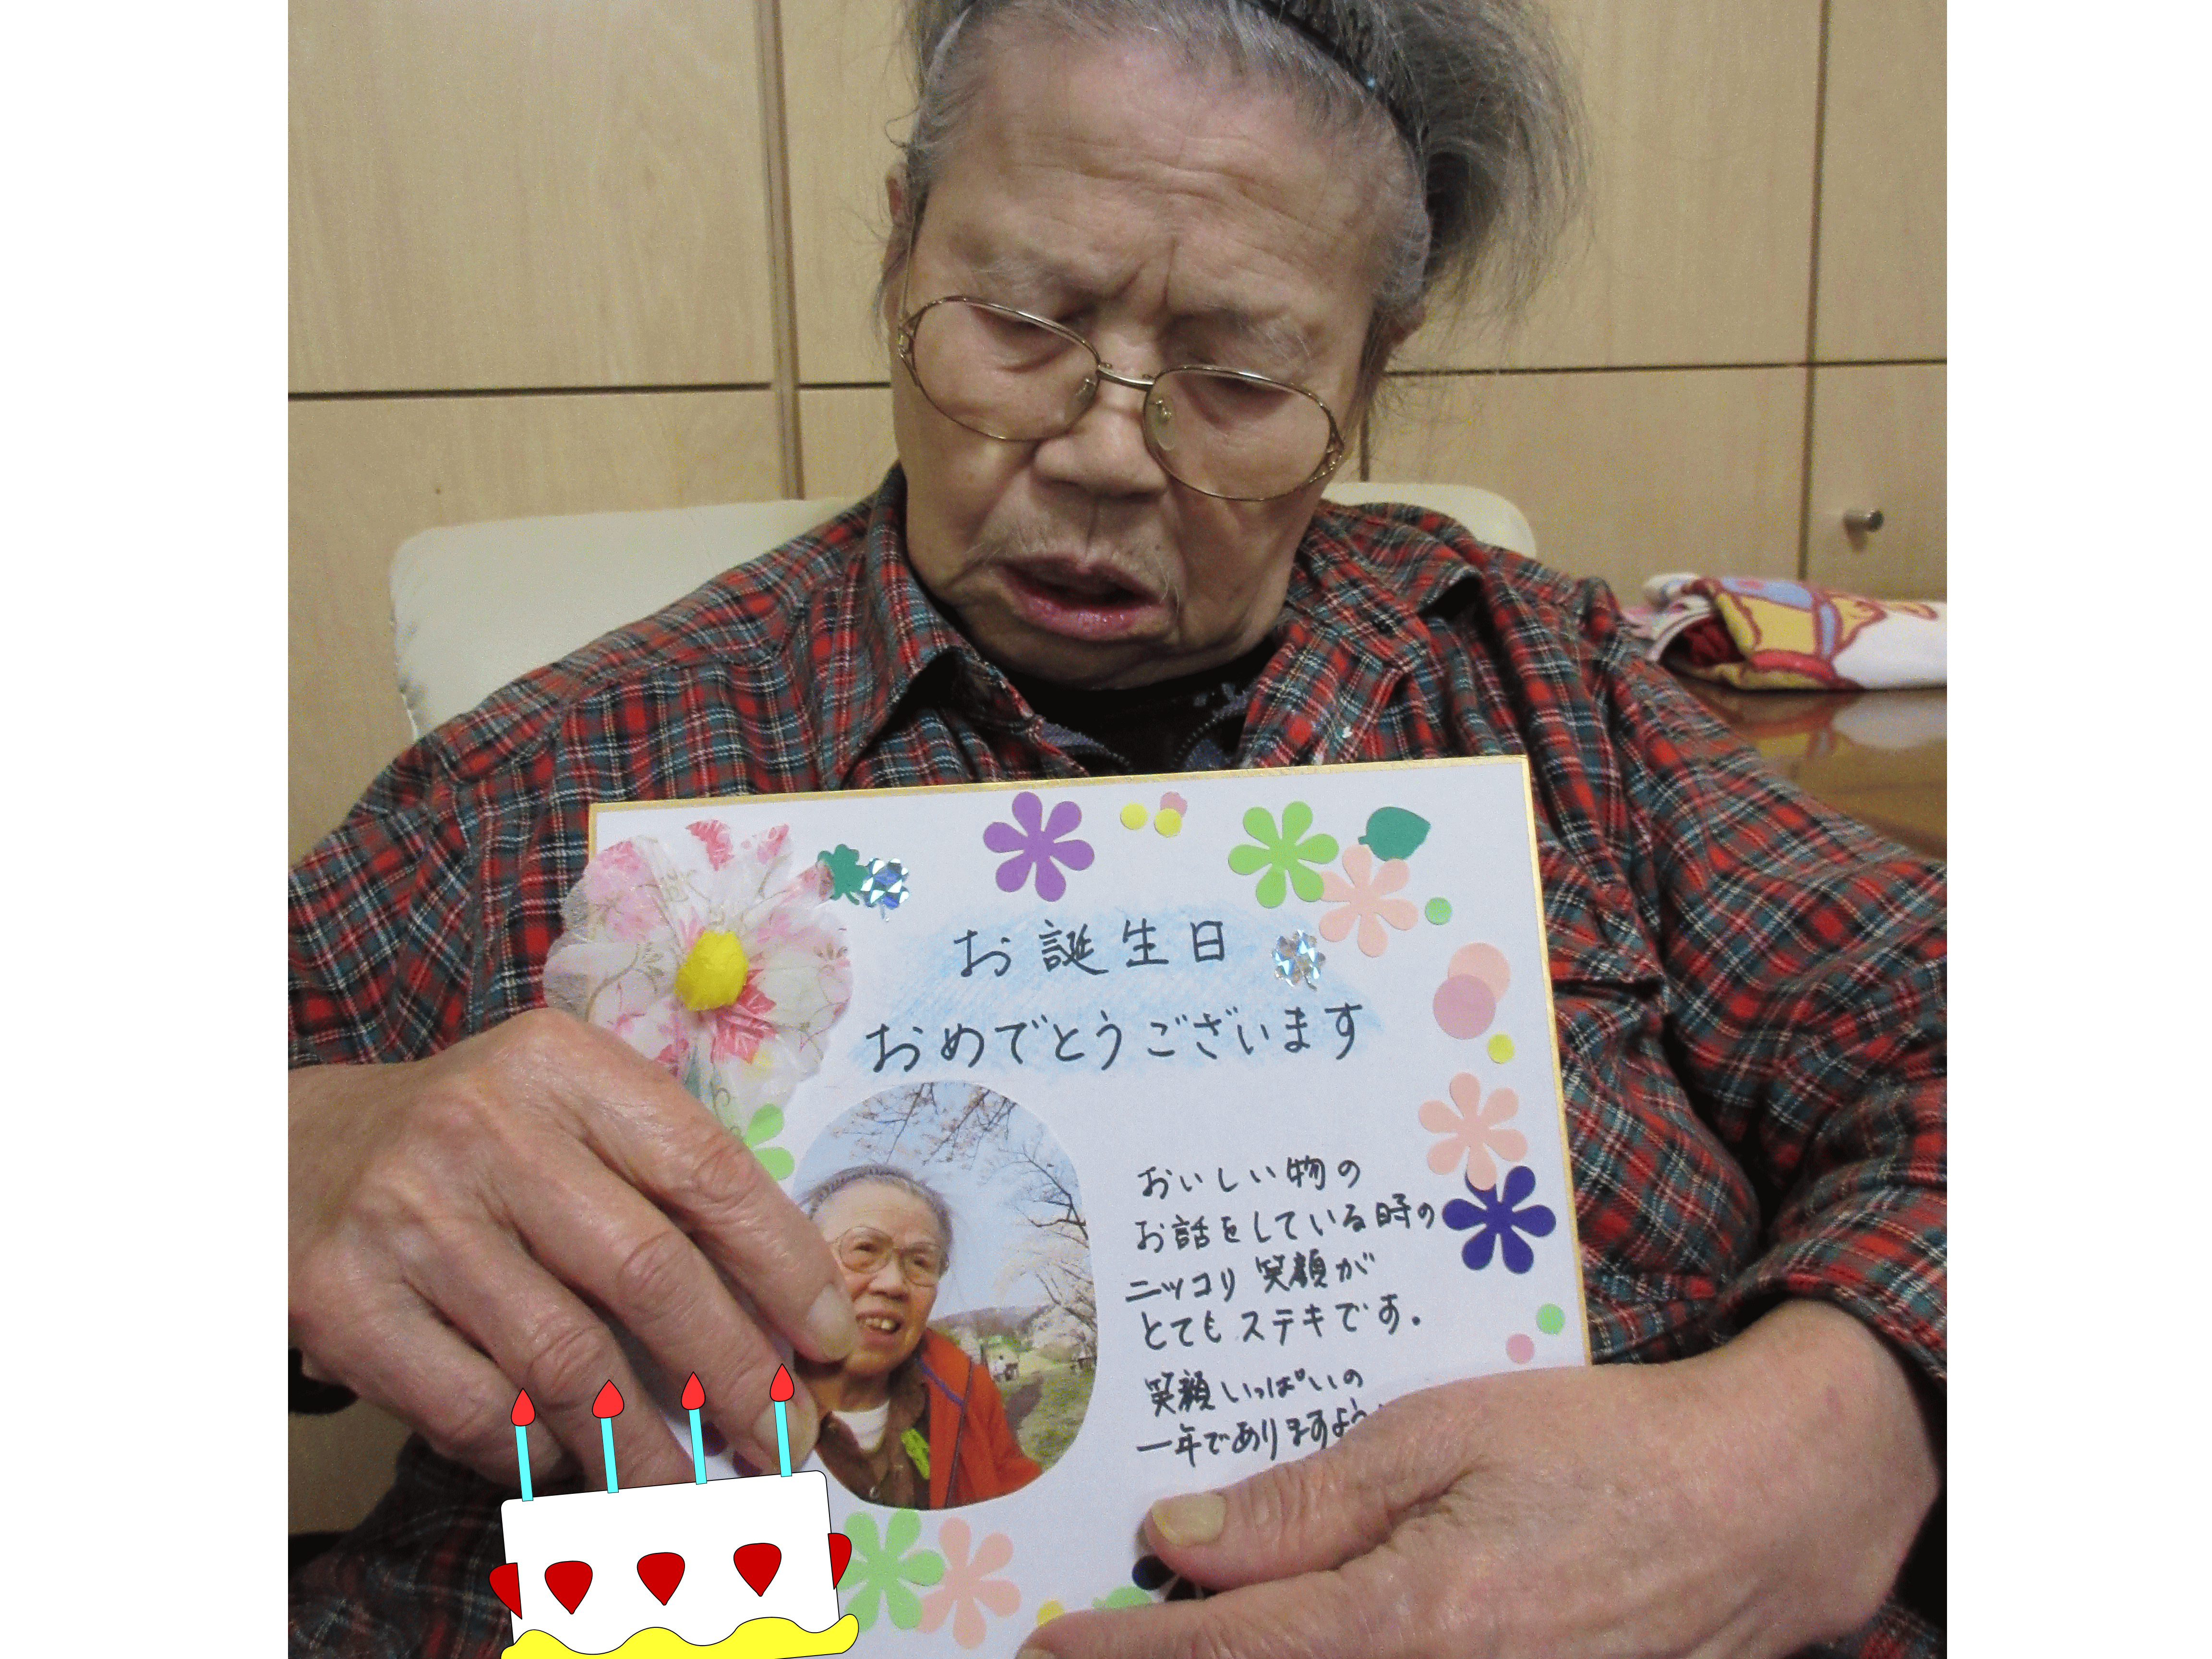 お誕生日
おめでとうございます
おいしい物の
お話をしている時の
ニッコリ笑顔が
とてもステキです。
笑顔いっぱいの
一年でありますよう